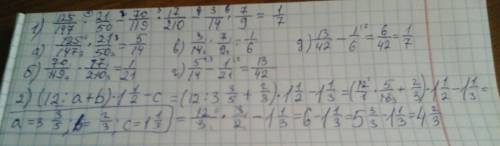 1) 125/147 · 21/50 - 70/119 · 17/210 - 3/14 · 7/9 = 1/7
а) 125/147 · 21/50 = 5/14 в) 3/14 · 7/9 = 1/6 д) 13/42 - 1/6 = 6/42 = 1/7
б) 70/119 · 17/210 = 1/21 г) 5/14 - 1/21 = 13/42
2) (12 : a+b) · 1 1/2 - c = (12 : 3 3/5 + 2/3) · 1 1/2 - 1 1/3 = (12/1 · 5/18 + 2/3) · 1 1/2 - 1 1/3 =
a = 3 3/5; b = 2/3; c = 1 1/3 = 12/3 · 3/2 - 1 1/3 = 6 - 1 1/3 = 5 3/3 - 1 1/3 = 4 2/3